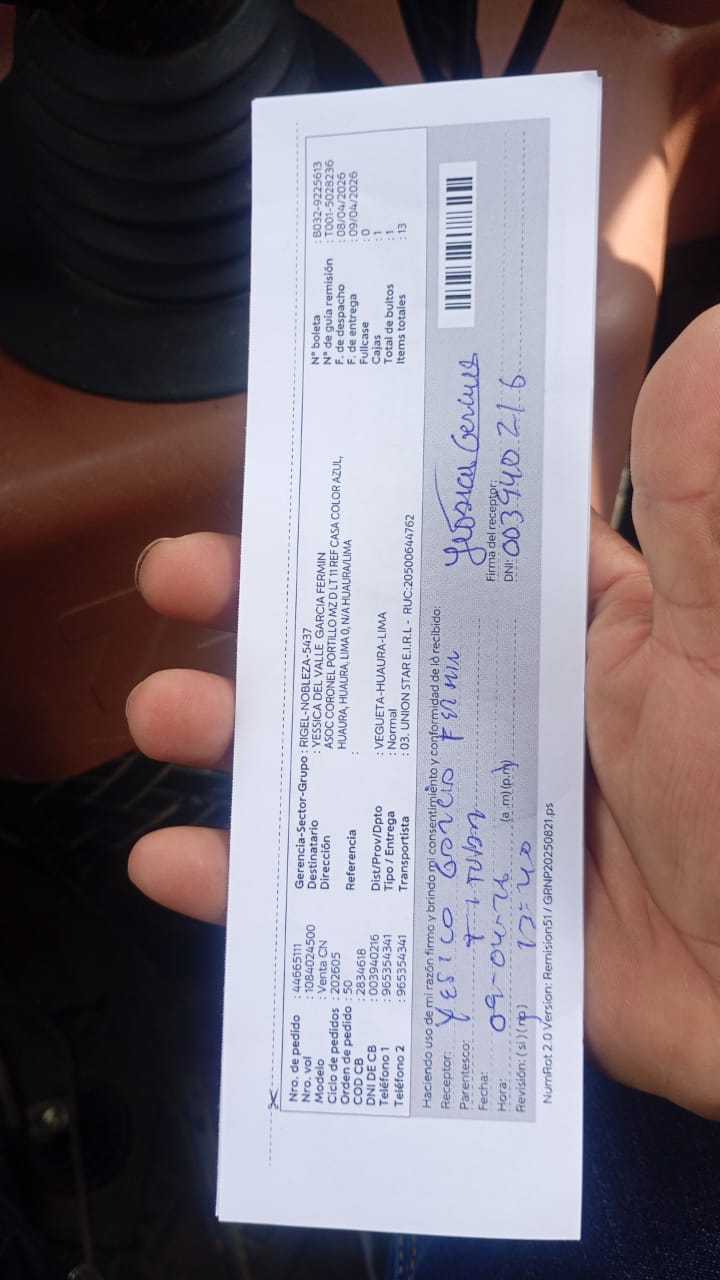 Nro. de pedido : 44665111
Nro. vol : 1084024500
Modelo : Venta CN
Ciclo de pedidos : 202605
Orden de pedido : 50
COD CB : 2834618
DNI DE CB : 003940216
Teléfono 1 : 965354341
Teléfono 2 : 965354341
Gerencia-Sector-Grupo : RIGEL-NOBLEZA-5437
Destinatario : YESSICA DEL VALLE GARCIA FERMIN
Dirección ASOC CORONEL PORTILLO MZ D LT 11 REF CASA COLOR AZUL,
HUAURA, HUAURA, LIMA 0, N/A HUAURA/LIMA
Referencia :
Dist/Prov/Dpto : VEGUETA-HUAURA-LIMA
Tipo / Entrega : Normal
Transportista : 03. UNION STAR E.I.R.L - RUC:20500644762
N° boleta : B032-9225613
N° de guía remisión : T001-5028236
F. de despacho : 08/04/2026
F. de entrega : 09/04/2026
Fullcase : 0
Cajas : 1
Total de bultos : 1
Items totales : 13
Haciendo uso de mi razón firmo y brindo mi consentimiento y conformidad de lo recibido:
Receptor:
Parentesco: Titular
Fecha: 09-04-26
Hora: (a.m)(p.m)
Revisión: (si)(no) 13:40
Firma del receptor:
DNI: 003940216
NumRot 2.0 Version: Remision51 / GRNP20250821.ps